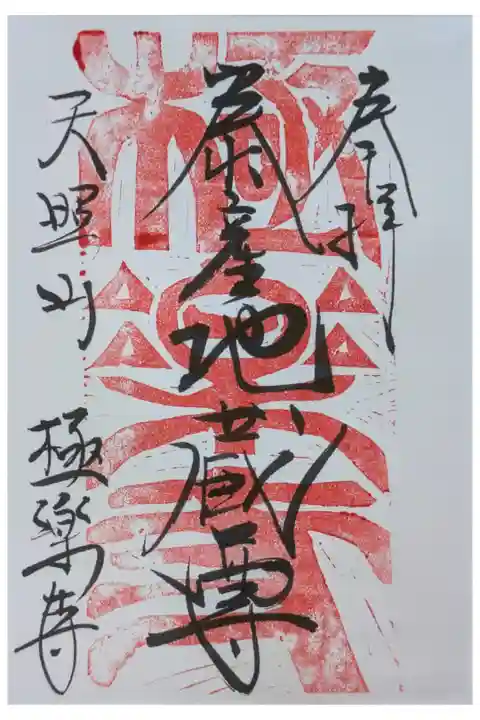 奉拝
産地蔵尊
天照山 極楽寺
極楽寺